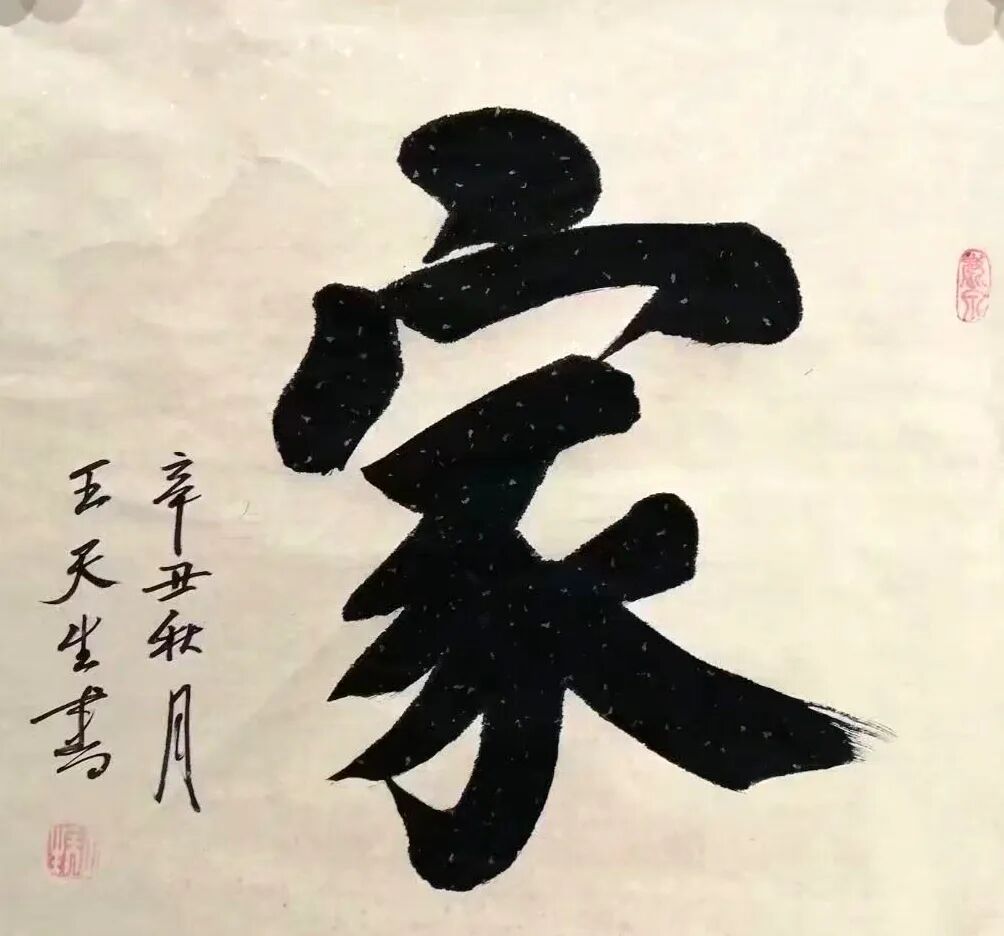 家
辛丑秋月
王天生書